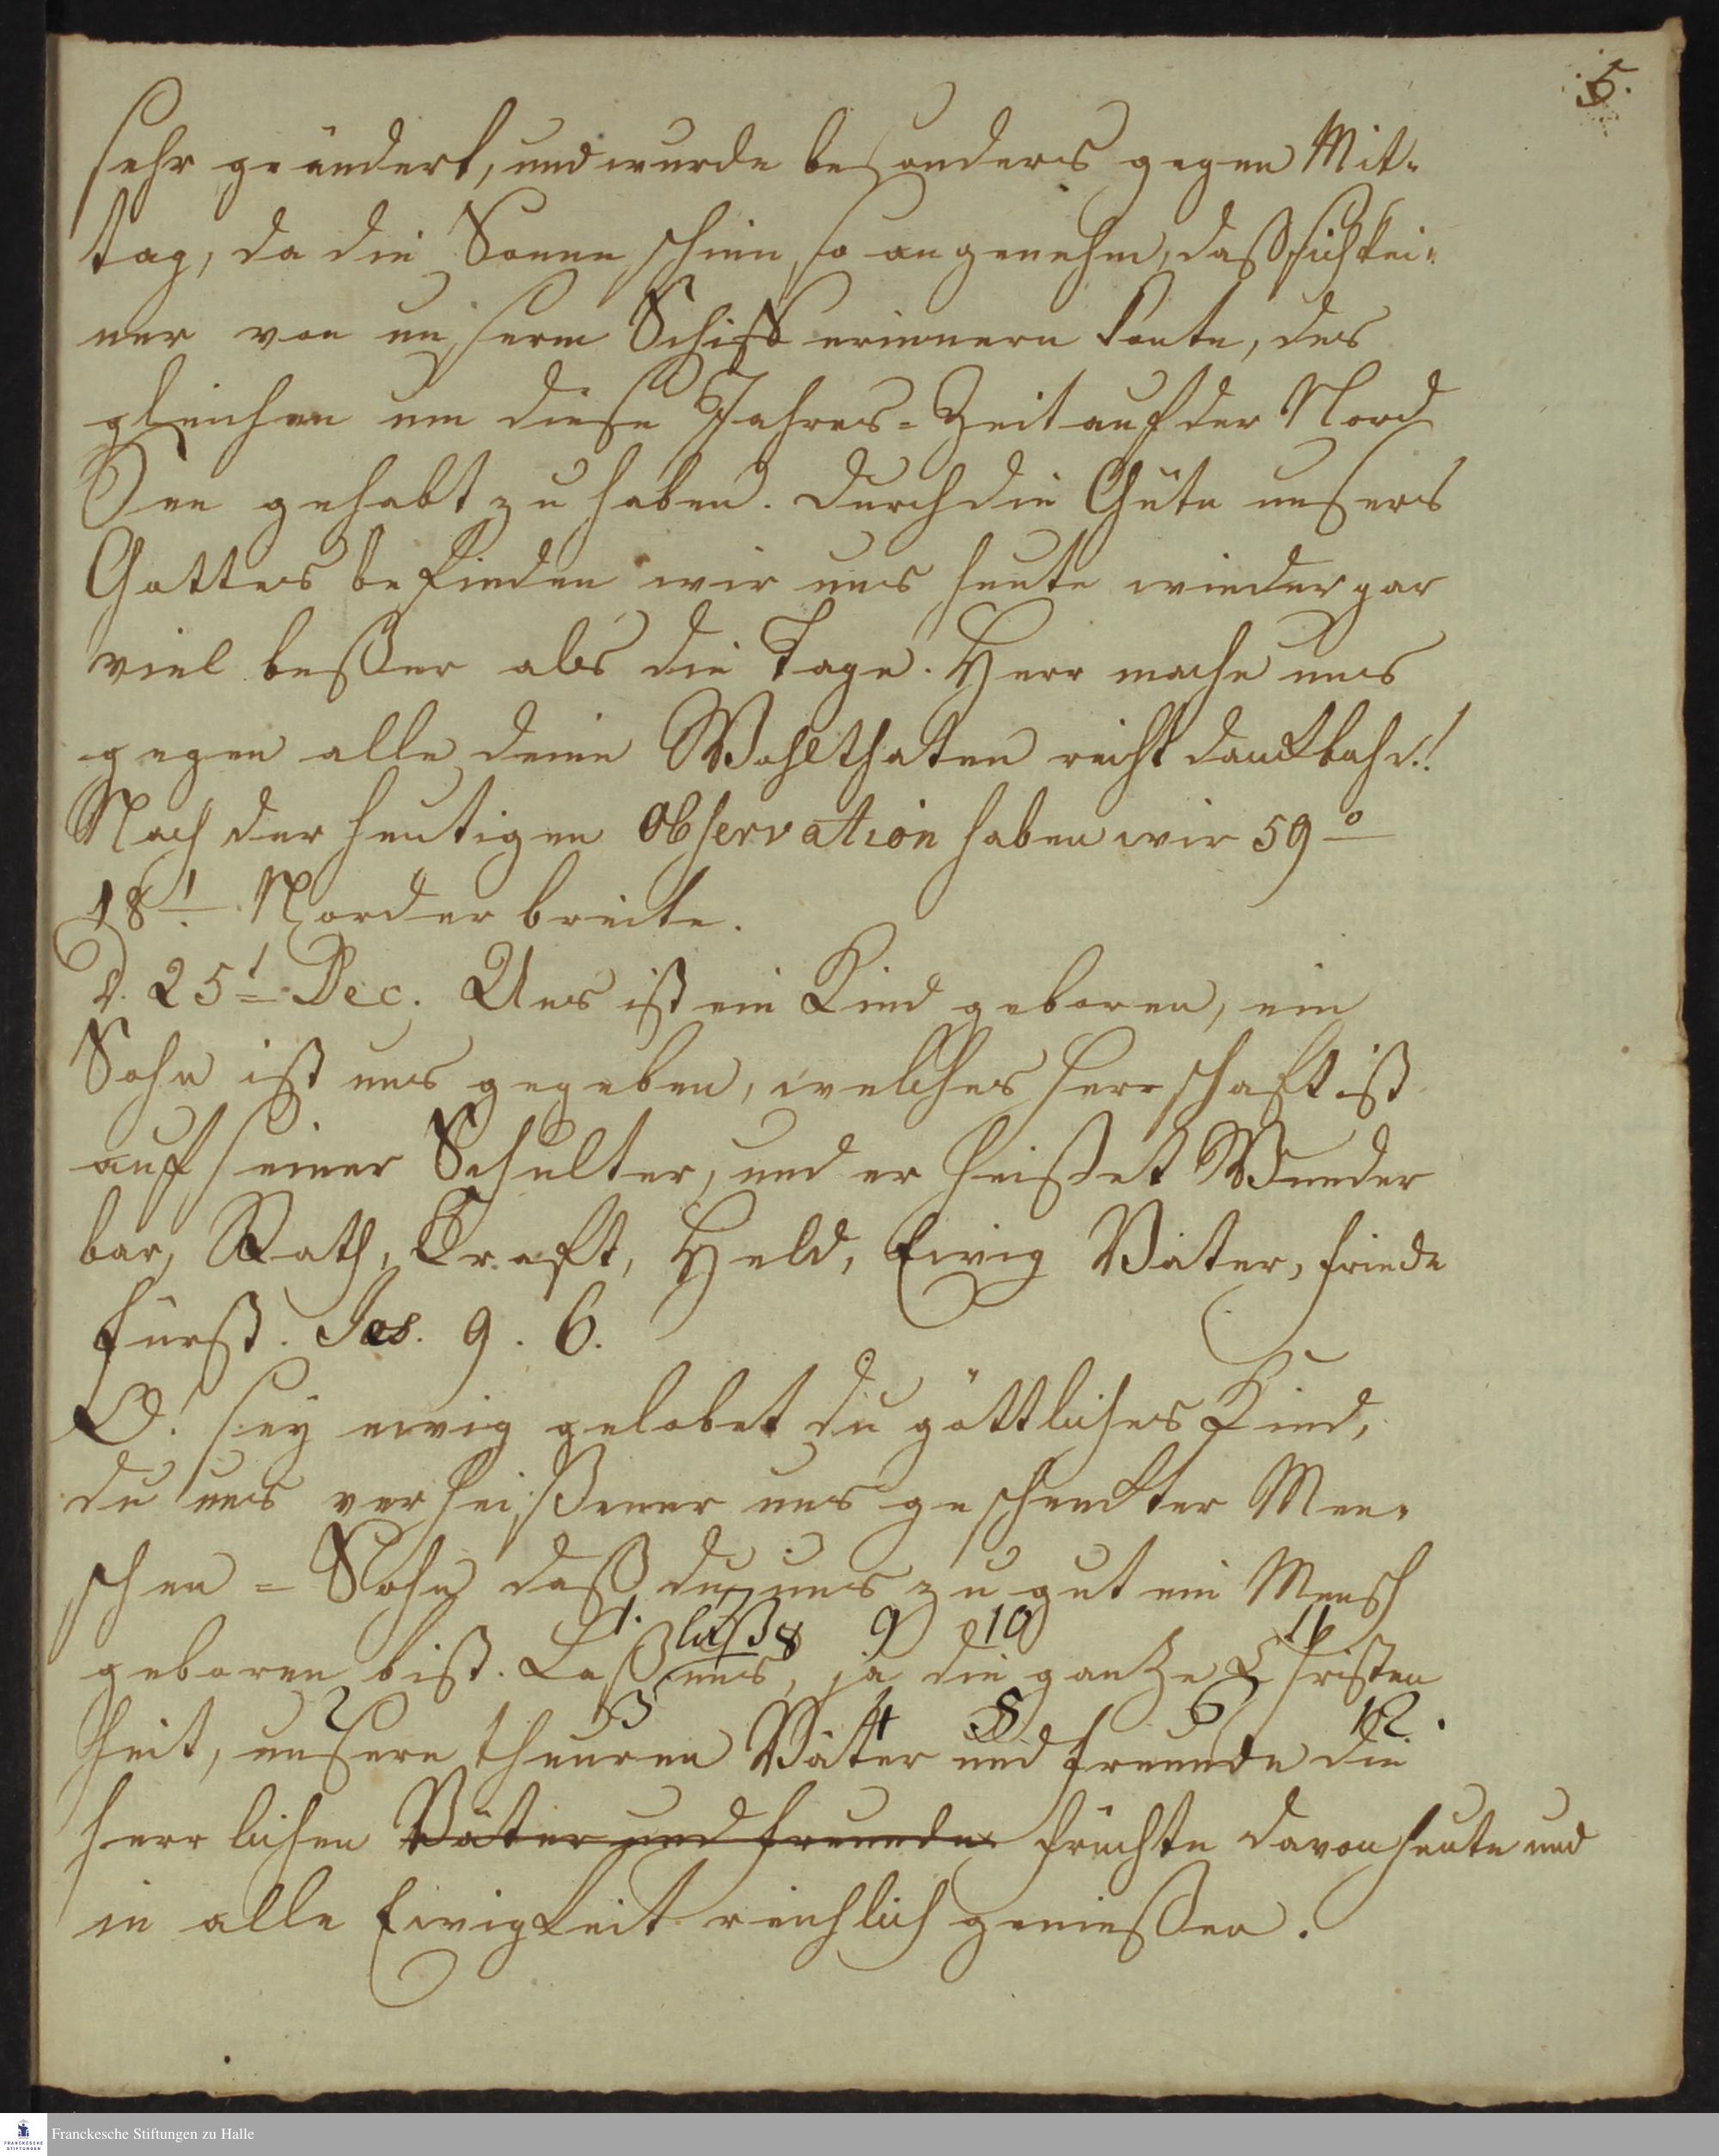 5.
sehr geändert, und wurde besonders gegen Mit-
tag, da die Sonne schien, so angenehm, daß sich kei-
ner von unserm Schiff erinnern konte, des
gleichen um diese Jahres-Zeit auf der Nord
See gehabt zu haben. Durch die Güte unsers
Gottes befinden wir uns heute wieder gar
viel beßer als die Tage. Herr mache uns
gegen alle deine Wohlthaten recht danckbahr!
Nach der heutigen Observation haben wir 59°
18' Norder breite.
d. 25t Dec. Uns ist ein Kind geboren, ein
Sohn ist uns gegeben, welches Herrschaft ist
auf seiner Schulter, und er heißet Wunder
bar, Rath, Craft, Held, Ewig Vater, Friede
fürst. Jes. 9. 6.
O! sey ewig gelobet du göttliches Kind,
du uns verheißener uns geschenckter Men-
schen-Sohn daß du uns zu gut ein Mensch
1. 7 8 9 10 11
geboren bist. Laß uns, ja die gantze Christen
2 3 4 5 6 12.
heit, unsere theuren Väter und Freunde die
herrlichen Väter und Freunde Früchte davon heute und
in alle Ewigkeit reichlich genießen.
Franckesche Stiftungen zu Halle